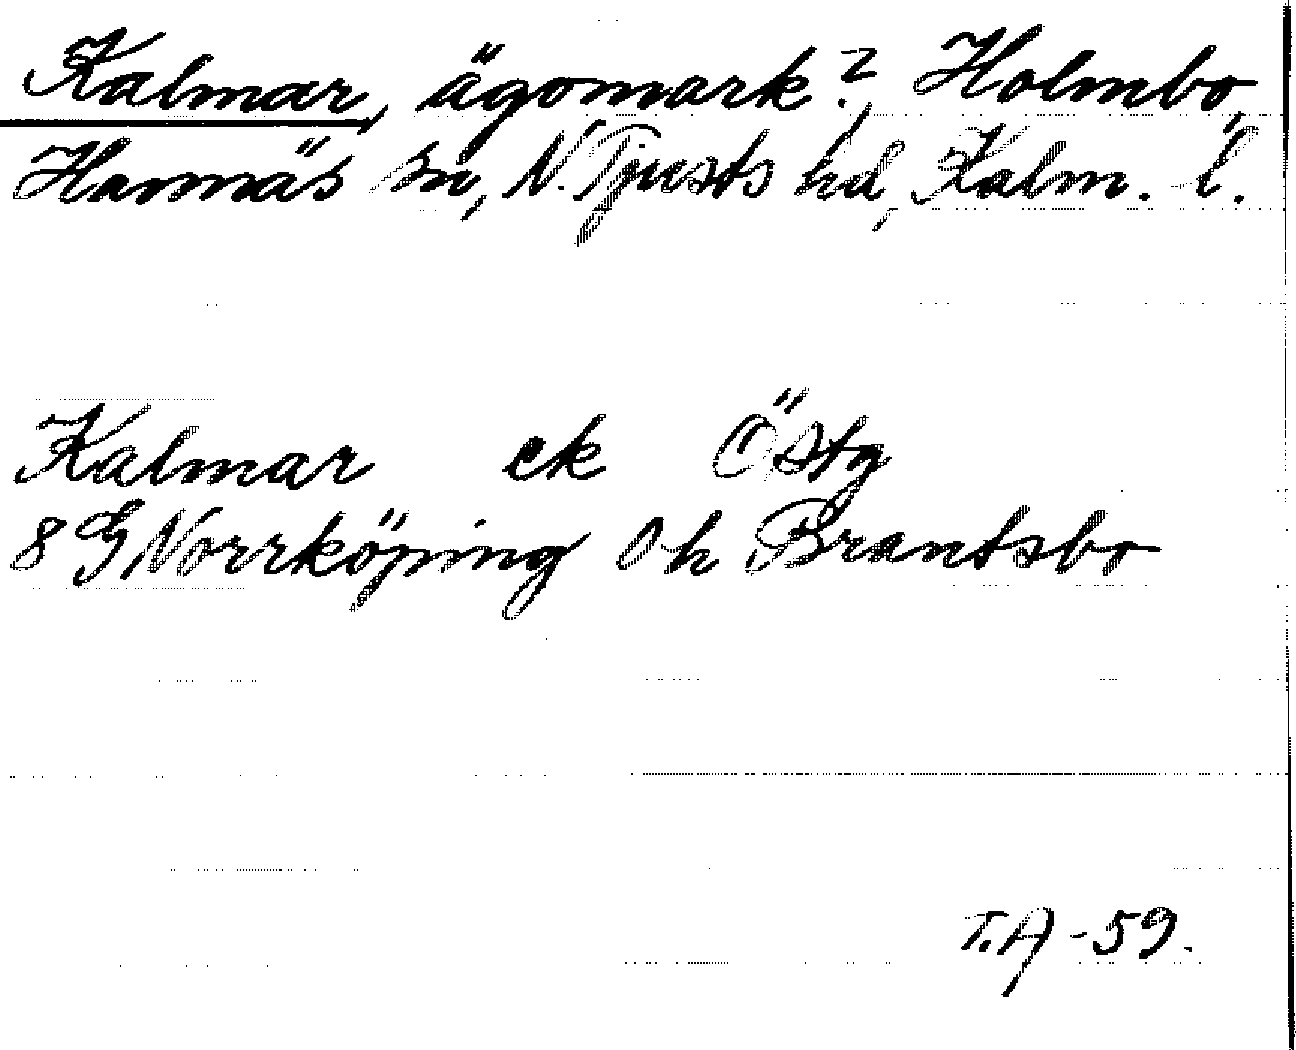 Kalmar, ägomark?, Holmbo,
Hannäs sn, N. Tjusts hd, Kalm. l.
Kalmar ek Östg
8 G Norrköping Oh Brantsbo
T.A -59.